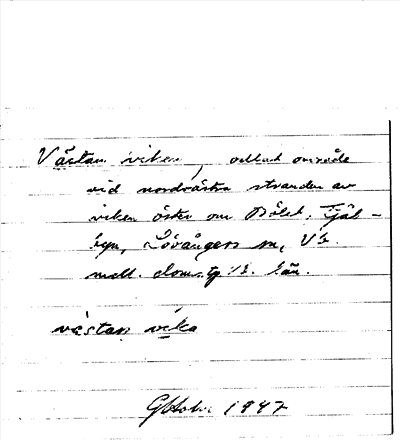 Västan viken, odlat område
vid nordvästra stranden av
viken öster om Bölet, Fjäl-
byn, Lövångers sn, Vb.
mell. doms. tg Vb. län.
västan vika
1947